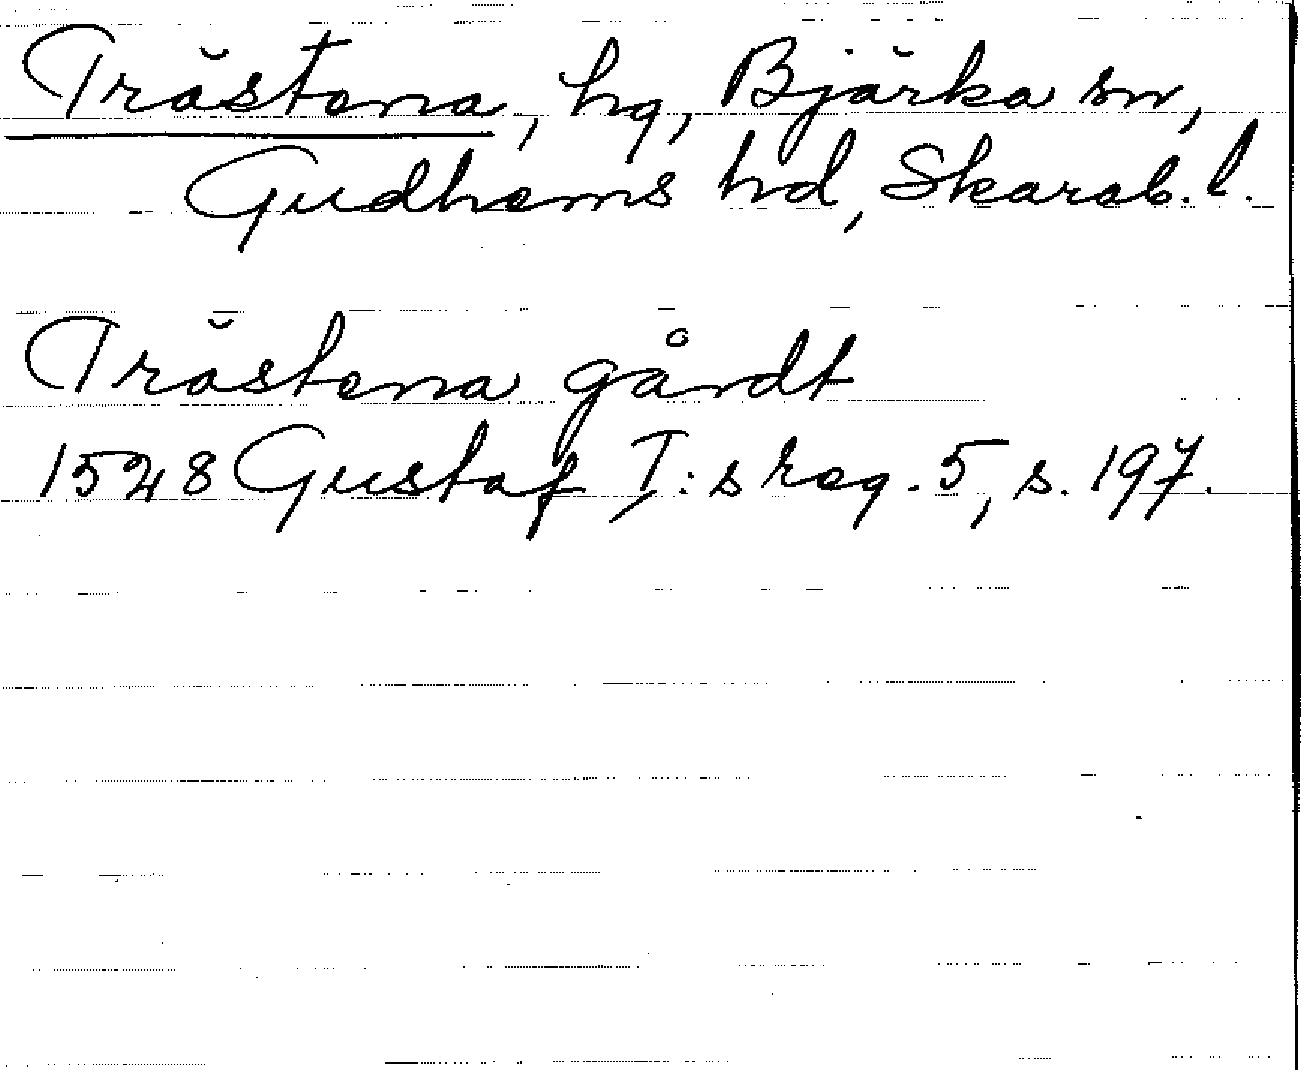 Trästena, hg, Bjärka sn,
Gudhems hd, Skarab. l.
Trästena gårdt
1528 Gustaf I: s reg. 5, s. 197.